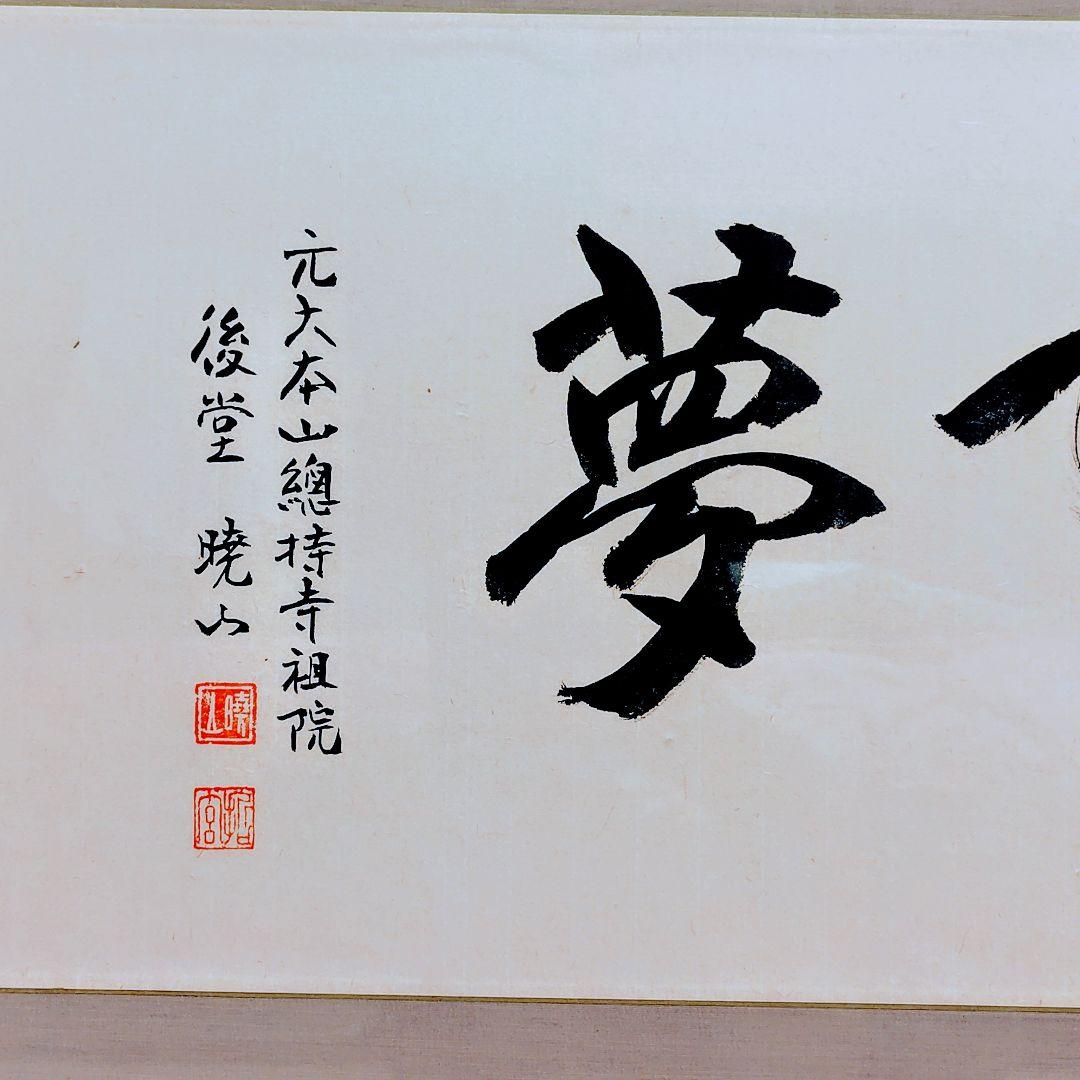 夢
元大本山總持寺祖院
後堂 曉山
曉山